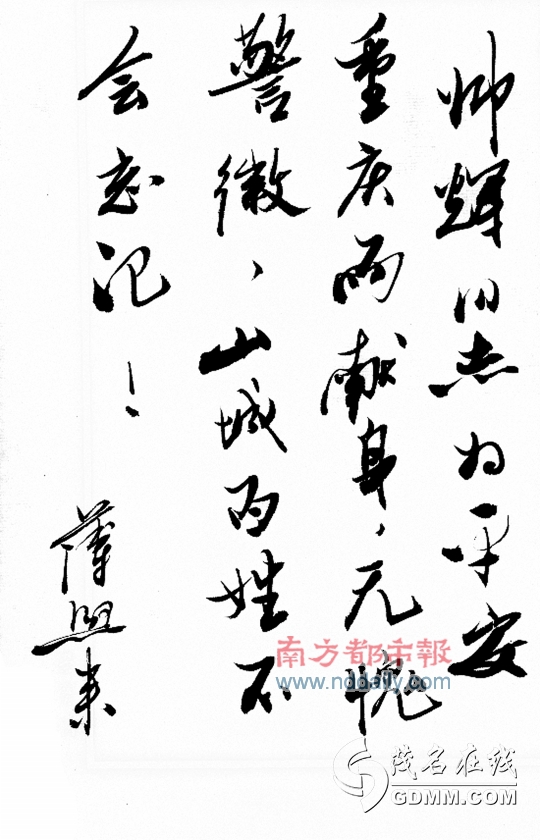 帅辉同志为平安
重庆而献身，无愧
警徽，山城百姓不
会忘记！
薄熙来
南方都市報
www.nddaily.com
茂名在线
GDMM.COM